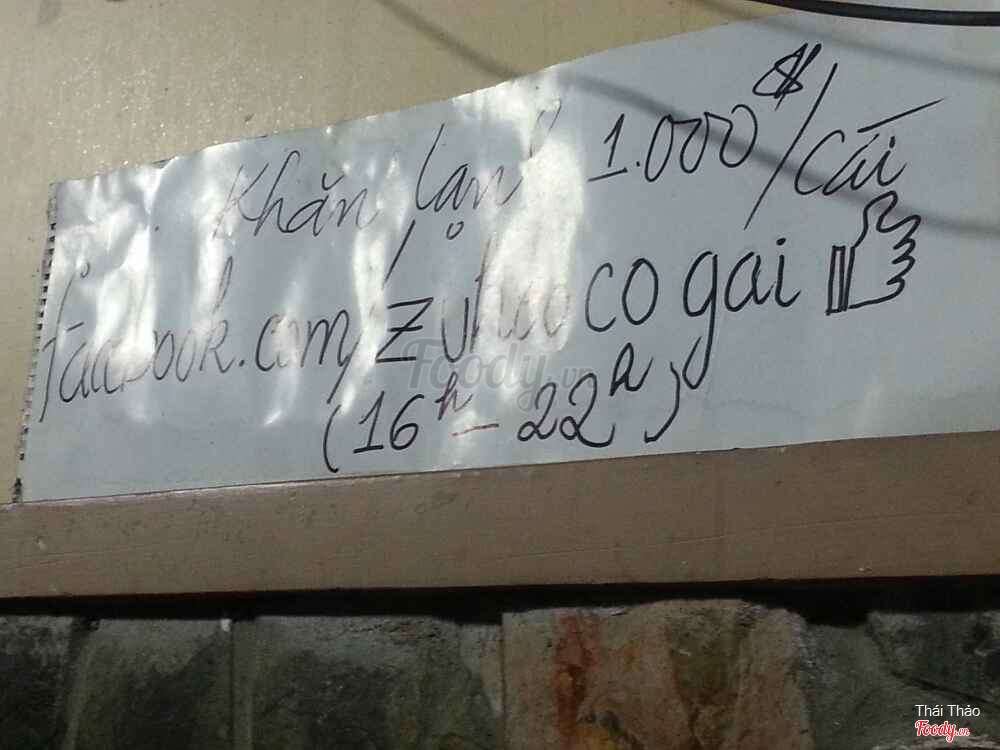 Khăn lạnh 1.000đ/cái
facebook.com/Zưheocogai
(16h - 22h)
Foody.vn
Thái Thảo
Foody.vn